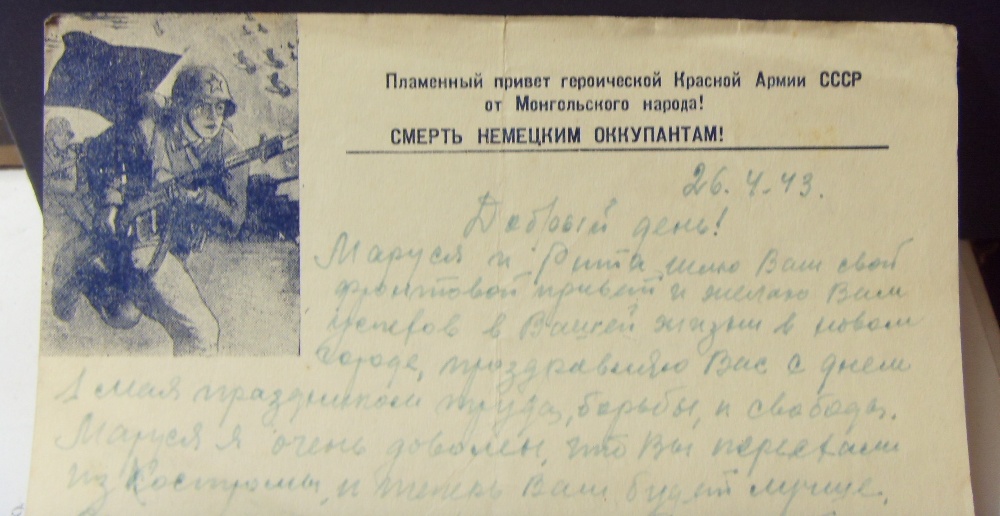 Пламенный привет героической Красной Армии СССР
от Монгольского народа!
СМЕРТЬ НЕМЕЦКИМ ОККУПАНТАМ!
26.4.43.
Добрый день!
Маруся и Рита, шлю Вам свой
фронтовой привет и желаю Вам
успехов в Вашей жизни в новом
городе, проздравляю Вас с днем
1 мая праздником труда, борьбы, и свободы.
Маруся я очень доволен, что Вы переехали
из Костромы, и теперь Вам будет лучше.